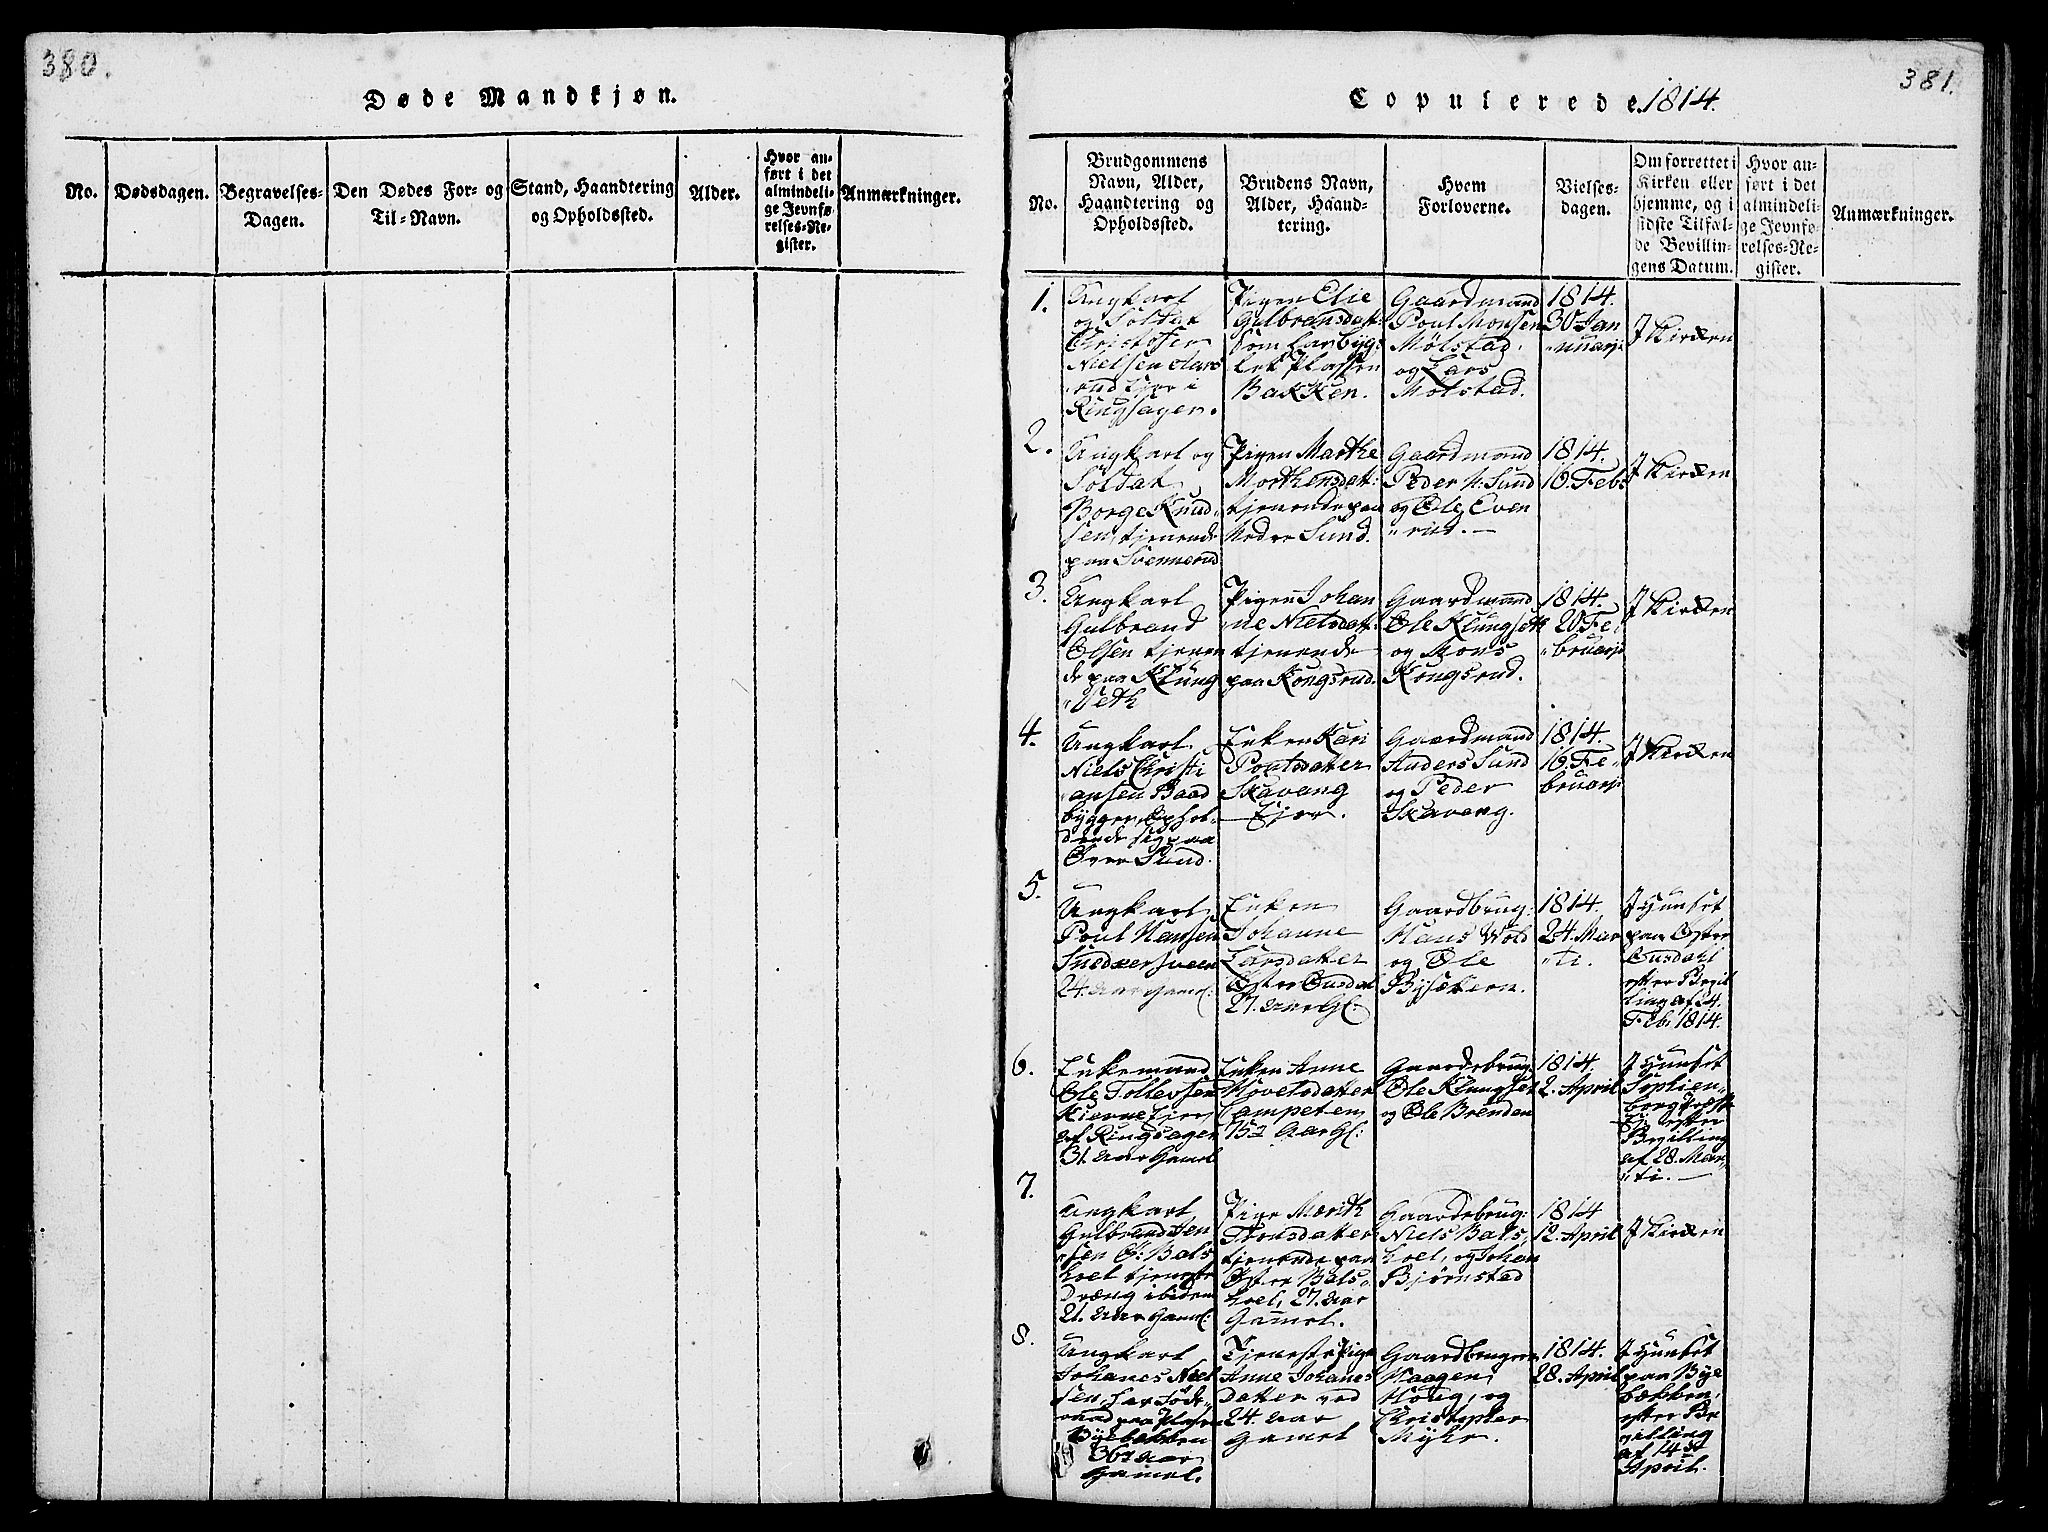 380.
Døde Mandkjøn.
No.
Dødsdagen.
Begravelses-
Dagen.
Den Dødes For- og
Til-Navn.
Stand, Haandtering
og Opholdssted.
Alder.
Hvor an-
ført i det
almindeli-
ge Jevnfø-
relses-Re-
gister.
Anmærkninger.
381.
Copulerede 1814.
No.
Brudgommens
Navn, Alder,
Haandtering og
Opholdssted.
Brudens Navn,
Alder, Haand-
tering.
Hvem
Forloverne.
Vielses-
dagen.
Om forrettet i
Kirken eller
hjemme, og i
sidste Tilfæl-
de Bevillin-
gens Datum.
Hvor an-
ført i det
almindeli-
ge Jevnfø-
relses-Re-
gister.
Anmærkninger.
1.
Ungkarl
og Soldat
Christofer
Nielsen
Ringsager.
Pigen Elie
Gulbrensdat:
Pladsen
Bakken.
Gaardmand
Poul Monsen
Mølstad.
og Lars
Mølstad.
1814.
30 Jan
"uarj
J Kirken
2.
Ungkarl og
Soldat
Borge Knud
sen, tjenende
paa Svennerud
Pigen Marthe
Morthensdat:
tjenende paa
Nedre Sund.
Gaardmand
Peder N: Sund
og Ole Even
"rud.
1814.
16. Feb:
J Kirken
3.
Ungkarl
Gulbrand
Olsen tjenen
de paa Klung
"seth
Pigen Johan
"ne Nielsdat:
tjenende
paa Kongsrud.
Gaardmand
Ole Klungseth
og Mons
Kongsrud.
1814.
20 Fe
"bruarj
J Kirken
4.
Ungkarl
Niels Christi
"ansen Baad
bygger, Ophol-
dende sig paa
Øvre Sund.
Enken Kari
Poulsdatter
Skavang
Ejer.
Gaardmand
Anders Sund
og Peder
Skavang.
1814.
16. Fe-
bruarj
J Kirken
5.
Ungkarl
Poul Hansen
Snedkersveen
24. Aar Gaml:
Enken
Johanne
Larsdatter
Østre
27. Aar Gl:
Gaardbrug:
Hans Wold
og Ole
1814.
24. Mar
"ti.
J Huuset
paa Østre
efter Bevil
ling af 24.
Feb. 1814.
6.
Enkemand
Ole Tollevsen
af Ringsager
31. Aar Gamel
Enken Anne
Hovelsdatter
Aar Gl:
Gaardebrug:
Ole Klungset
og Ole Brenden
1814.
2. April
J Huuset
Sophien
berg
efter
Bevilling
af 28. Mar
"ti.
7.
Ungkarl
Gulbrand Jen
"sen Ø: Bals
hoel tjeneste
Dreng ibidem
21. Aar Gaml:
Pige Marith
Tronsdatter
tjenende paa
Østre Bals
hoel, 27. Aar
Gamel.
Gaardebrug:
Niels Bals
hoel, og Johan
Bjørnstad
1814
12. April
J Kirken
8.
Ungkarl
Johanes Niel
sen, har Føde
raad paa Pladsen
Byebekken
36 Aar
Gamel.
Tjeneste Pige
Anne Johanes
Datter ved
24. Aar
Gamel
Gaardbrugerne
Haagen
Houg, og
Christopher
Myhr.
1814.
28. April
J Huuset
paa Bye
bekken,
efter Be
villing
af 14de
April.